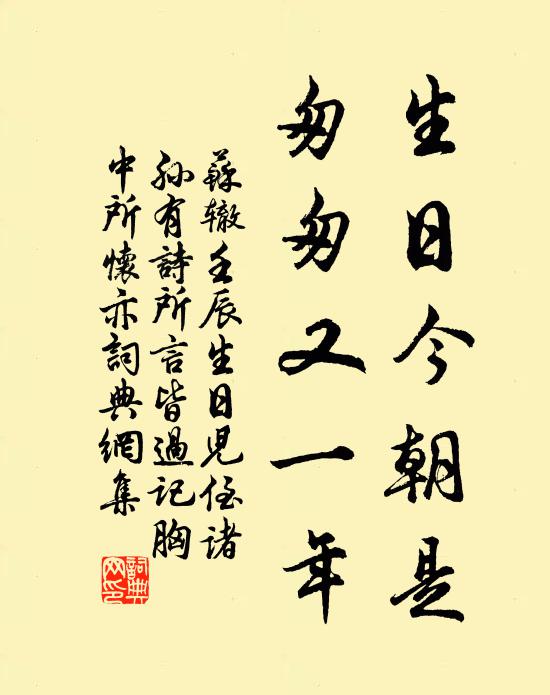 生日今朝是
匆匆又一年
蘇辙壬辰生日兒侄諸
孫有詩所言皆過記胸
中所懷亦詞典網集
詞典
网印